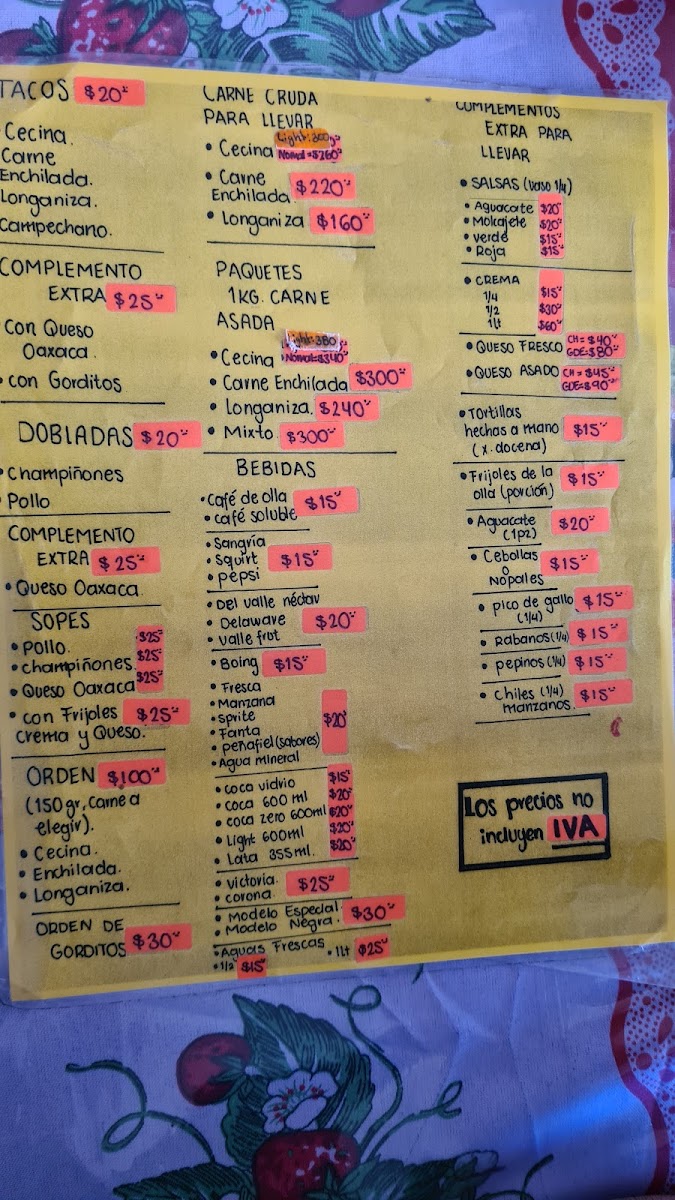 TACOS $20
Cecina.
Carne
Enchilada.
Longaniza.
Campechano.
COMPLEMENTO
EXTRA $25
Con Queso
Oaxaca.
con Gorditos
DOBLADAS $20
• Champiñones
• Pollo
COMPLEMENTO
EXTRA $25
• Queso Oaxaca.
SOPES
• Pollo. $25
• champiñones. $25
• Queso Oaxaca $25
• con Frijoles $25
crema y Queso.
ORDEN $100
(150 gr, carne a
elegir).
• Cecina.
• Enchilada.
• Longaniza.
ORDEN DE
GORDITOS $30
CARNE CRUDA
PARA LLEVAR
• Cecina Normal=$260
• Carne
Enchilada $220
• Longaniza $160
PAQUETES
1KG. CARNE
ASADA
Light:380
• Cecina Normal=$340
• Carne Enchilada $300
• Longaniza. $240
• Mixto. $300
BEBIDAS
• café de olla $15
• café soluble
• Sangría
• Squirt $15
• pepsi
• Del valle néctar
• Delaware $20
• valle frut
• Boing $15
• Fresca
• Manzana
• sprite $20
• Fanta
• peñafiel (sabores)
• Agua mineral
• coca vidrio $15
• coca 600 ml $20
• coca zero 600ml $20
• Light 600ml $20
• Lata 355ml. $20
• victoria. $25
• corona.
• Modelo Especial. $30
• Modelo Negra.
• Aguas Frescas • 1Lt $25
• 1/2 $15
COMPLEMENTOS
EXTRA PARA
LLEVAR
• SALSAS (vaso 1/4)
• Aguacate $20
• Molcajete $20
• verde $15
• Roja $15
• CREMA
1/4 $15
1/2 $30
1Lt $60
• QUESO FRESCO CH=$40
GDE=$80
• QUESO ASADO CH=$45
GDE=$90
• Tortillas
hechas a mano $15
(x. docena)
• Frijoles de la $15
olla (porción)
• Aguacate $20
(1pz)
• Cebollas
o $15
Nopales
• pico de gallo $15
(1/4)
• Rabanos (1/4) $15
• pepinos (1/4) $15
• Chiles (1/4) $15
manzanos.
Los precios no
incluyen IVA